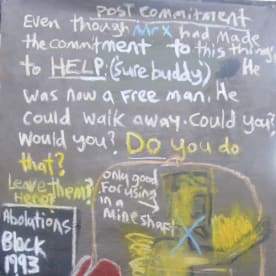 POST COMMITMENT
Even though Mrx had made
the commitment to this thing
to HELP. (sure buddy) He
was now a free man. He
could walk away. Could you?
Would you? Do you do
that?
Leave them?
Here?
only good
For using
in a
Mineshaft
X
Abolations
Block
1993